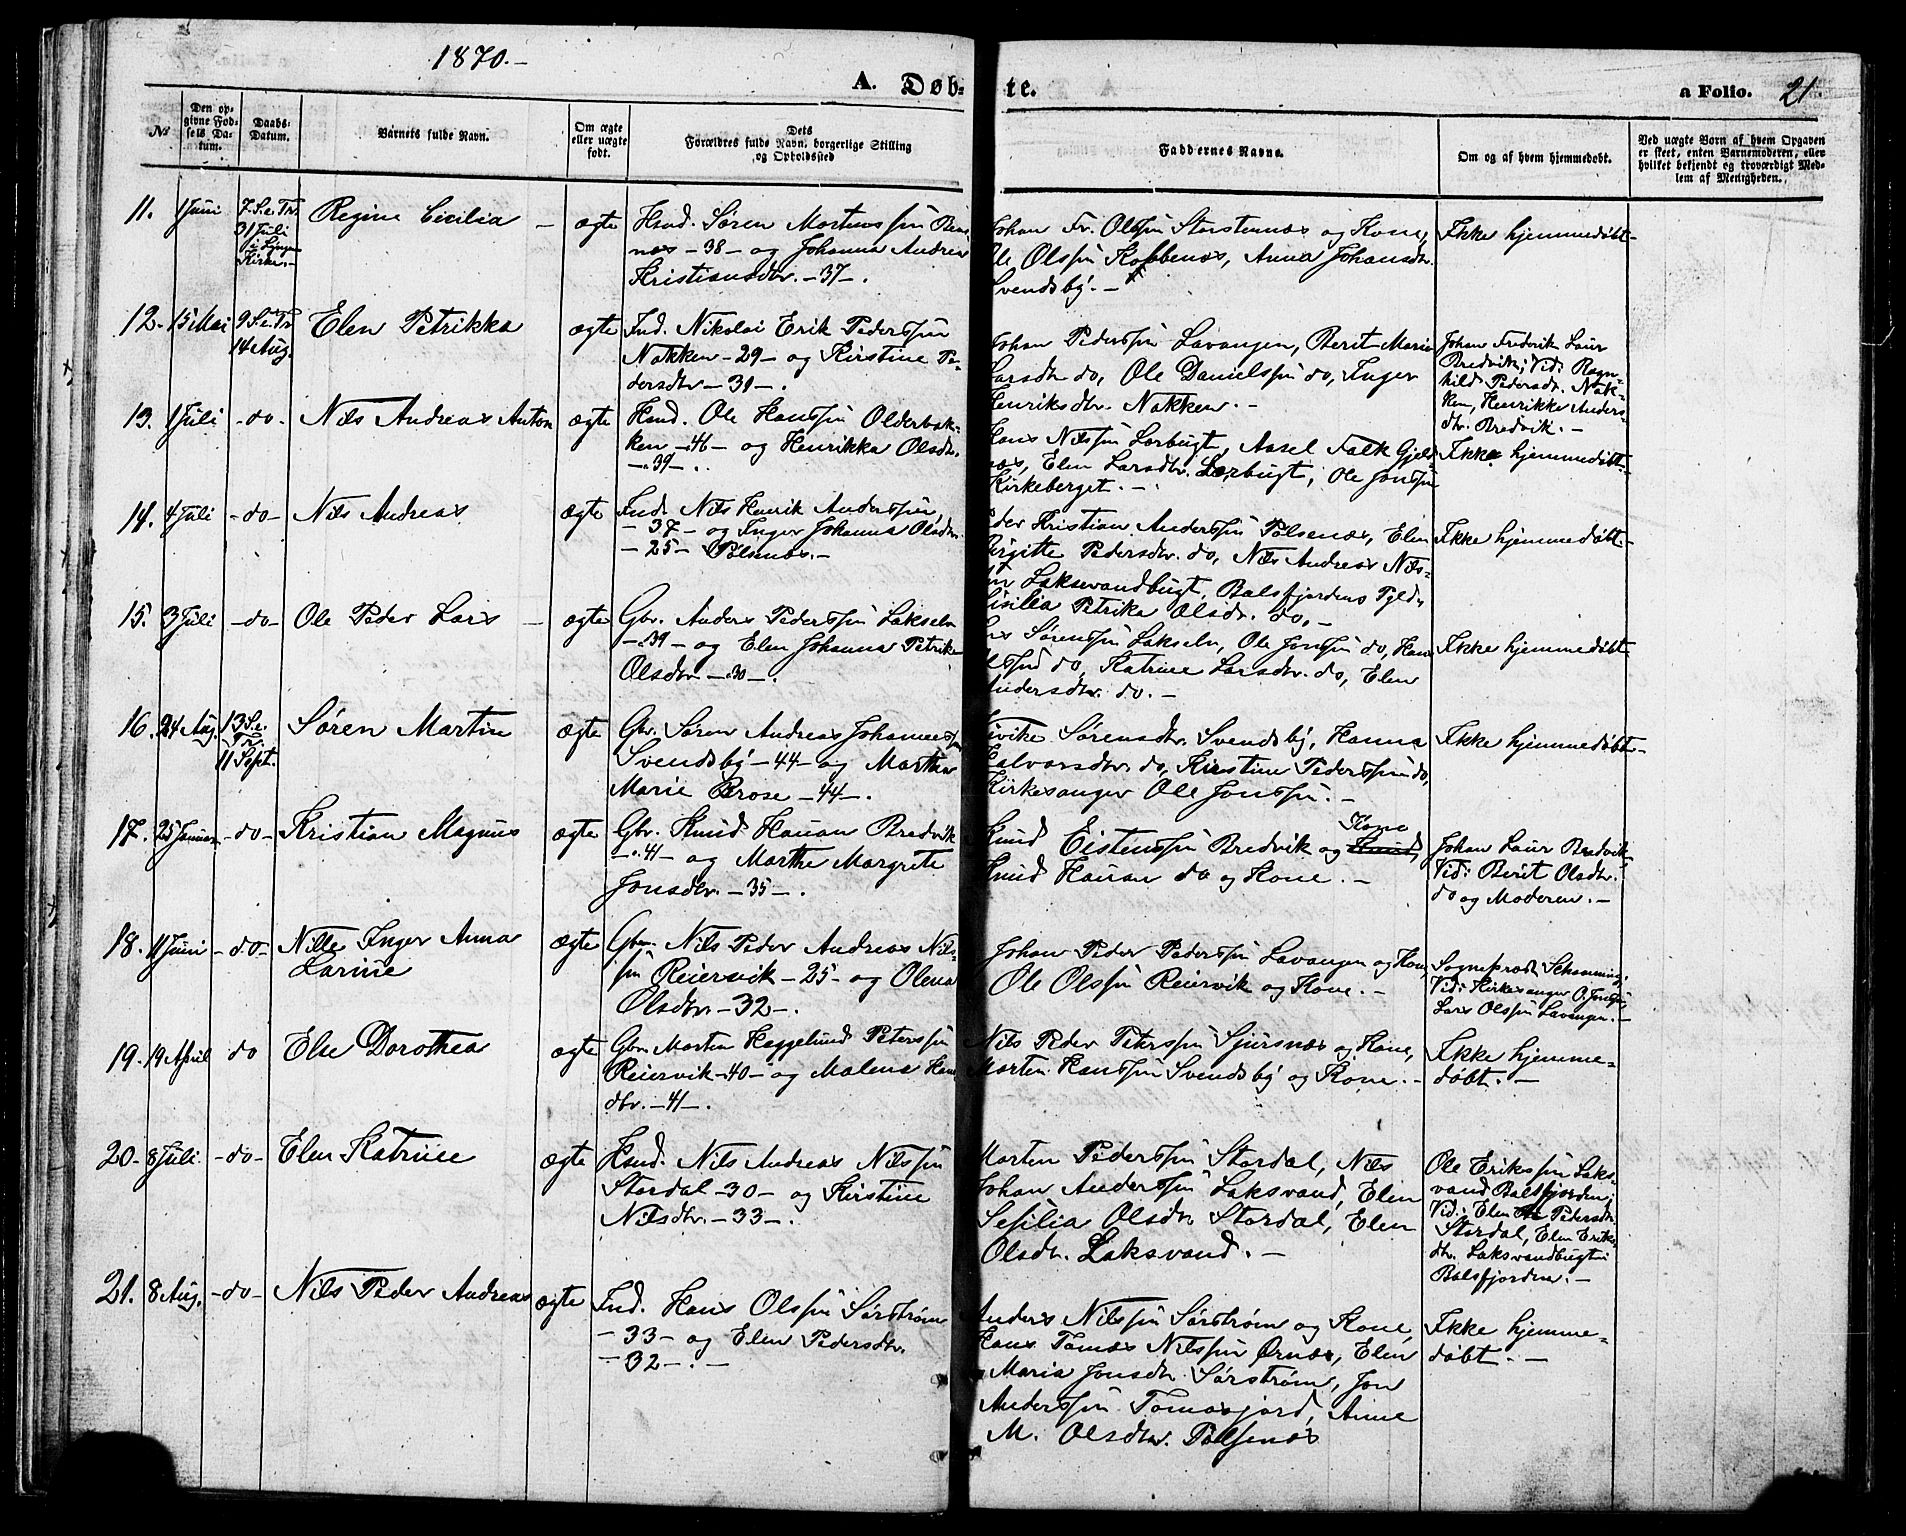 1870.-
A. Døb-
te.
a Folio. 21.
№
Den op-
givne Fød-
sels Da-
tum.
Daabs-
Datum.
Barnets fulde Navn.
Om ægte
eller uægte
født.
Dets
Forældres fulde Navn, borgerlige Stilling
og Opholdssted
Faddernes Navne.
Om og af hvem hjemmedøbt.
Ved uægte Børn af hvem Opgaven
er skeet, enten Barnemoderen, eller
hvilket bekjendt og troværdigt Med-
lem af Menigheden.
11. 1 Juni
7 S. e. Tr.
31 Juli
i Lyngen
Kirke.-
Regine Cecilia -
ægte
Hsmd. Søren Mortenssøn
næs -38- og Johanna Andrea
Kristiansdtr. -37-.
Johan Fr. Olssøn Storstennæs og Kone,
Ole Olssøn Kobbenæs, Anna Johansdtr.
Svendsby. -
Ikke hjemmedøbt-
12. 15 Mai
9 S. e. Tr
14 Aug.
Elen Petrikka
ægte
Ind. Nikolai Erik Pederssøn
Nakken -29- og Kirstine Pe-
dersdtr -31-.
Johan Pederssøn Lavangen, Berit Maria
Larsdtr do, Ole Danielssøn do, Inger
Henriksdtr. Nakken. -
Johan Frederik Laur
Bredvik; Vid: Ragn-
hild Pedersdtr. Nak-
ken, Henrikke Anders-
dtr. Bredvik. -
13. 1 Juli -do-
Nils Andreas Anton
ægte
Hsmd. Ole Hanssøn Olderbak-
ken -46- og Henrikka Olsdtr.
-39-.
Hans Nilssøn Lørbugt, Aasel Falk Gjøl-
næs, Elen Larsdtr. Lærbugt, Ole Jonssøn
Kirkeberget. -
Ikke hjemmedøbt-
14. 4 Juli -do-
Nils Andreas
ægte
Ind. Nils Henrik Anderssøn,
-37- og Inger Johanna Olsdtr
-25- Pølsnæs.-
Peder Kristian Anderssøn Pølsenæs, Elen
Birgitte Pedersdtr. do, Nils Andreas Nils-
søn Laksevandbugt, Balsfjordens Pgld.,
Cisilia Petrika Olsdr. do.-
Ikke hjemmedøbt-
15. 3 Juli -do-
Ole Peder Lars -
ægte
Gbr. Anders Pederssøn Lakseln
-39- og Elen Johanna Petrika
Olsdtr -30-.
Lars Sørenssøn Lakseln, Ole Jonssøn do, Hans
Olssøn do, Katrine Larsdtr. do, Elen
Andersdtr. do.-
Ikke hjemmedøbt
16. 24 Aug.
13 S. e.
Tr.
11 Sept.
Søren Martin
ægte
Gbr. Søren Andreas Johannessøn
Svendsby -44- og Marthe
Marie Brose -44-.
Sivike Sørensdtr. Svendsby, Hanna
Halvorsdtr. do, Kirstine Pederssøn do,
Kirkesanger Ole Jonssøn. -
Ikke hjemmedøbt-
17. 25 Januar -do-
Kristian Magnus
ægte
Gbr. Knud Hauan Bredvik
-41- og Marthe Margrete
Jonsdtr. -35-.
Knud Eistenssøn Bredvik og Kone
Knud Hauan do og Kone. -
Johan Laur Bredvik
Vid: Berit Olsdtr.
do og Moderen. -
18. 11 Juni -do-
Nille Inger Anna
Larine
ægte
Gbr. Nils Peder Andreas Nils-
søn Reiervik -25- og Olena
Olsdtr. -32-.
Johan Peder Pederssøn Lavangen og Kone,
Ole Olssøn Reiervik og Kone. -
Sognepræst Schanning;
Vid: Kirkesanger O. Jonssøn,
Lars Olssøn Lavangen. -
19. 19 April do
Else Dorothea
ægte
Gbr. Morten Heggelund Peterssøn
Reiervik -40- og Malena Hans
dtr. -41-.
Nils Peder Peterssøn Sjursnæs og Kone,
Morten Hanssøn Svendsby og Kone.-
Ikke hjemme-
døbt. -
20. 8 Juli. -do-
Elen Katrine
ægte
Hsmd. Nils Andreas Nilssøn
Stordal -30- og Kirstine
Nilsdtr. -33-.
Morten Pederssøn Stordal, Nils
Johan Anderssøn Laksvand, Elen
Sesilia Olsdtr Stordal, Elen
Olsdtr. Laksvand. -
Ole Erikssøn Laks-
vand Balsfjorden;
Vid: Elen Pedersdtr.
Stordal, Elen Eriks-
dtr. Laksvandbugt i
Balsfjorden. -
21. 8 Aug. -do-
Nils Peder Andreas
ægte
Ind. Hans Olssøn Sørstrøm
-33- og Elen Pedersdtr.
-32-.-
Anders Nilssøn Sørstrøm og Kone,
Hans Tomas Nilssøn Ørnæs, Elen
Maria Jonsdtr Sørstrøm, Jon
Anderssøn Tomasjord, Anne
M. Olsdtr. Pølsenæs
Ikke hjemme-
døbt. -